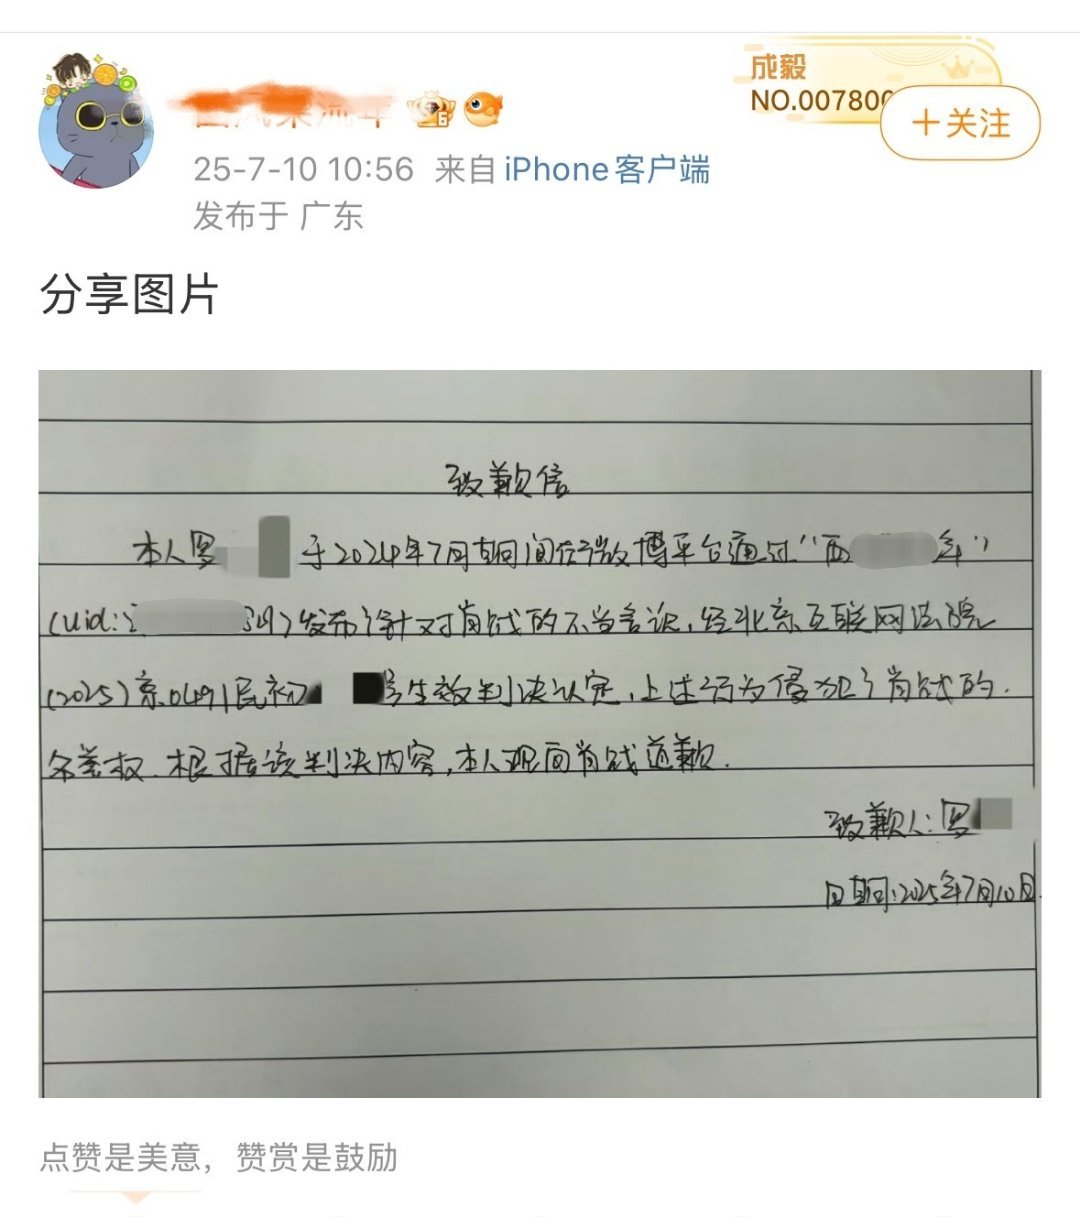 成毅
NO.007800
+关注
25-7-10 10:56 来自 iPhone客户端
发布于 广东
分享图片
致歉信
本人罗 于2024年7月期间在微博平台通过"西 年"
(uid: 39)发布针对肖战的不当言论,经北京互联网法院
(2025)京0491民初 号生效判决认定,上述行为侵犯了肖战的
名誉权.根据该判决内容,本人现向肖战道歉.
致歉人:罗
日期:2025年7月10日.
点赞是美意,赞赏是鼓励